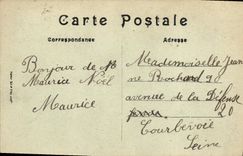 Carte Postale
Correspondance
Adresse
Bonjour de
Maurice Noël
Maurice
Mademoiselle Jean
ne Rochard 90
avenue de la Défense
20
Courbevoie
Seine